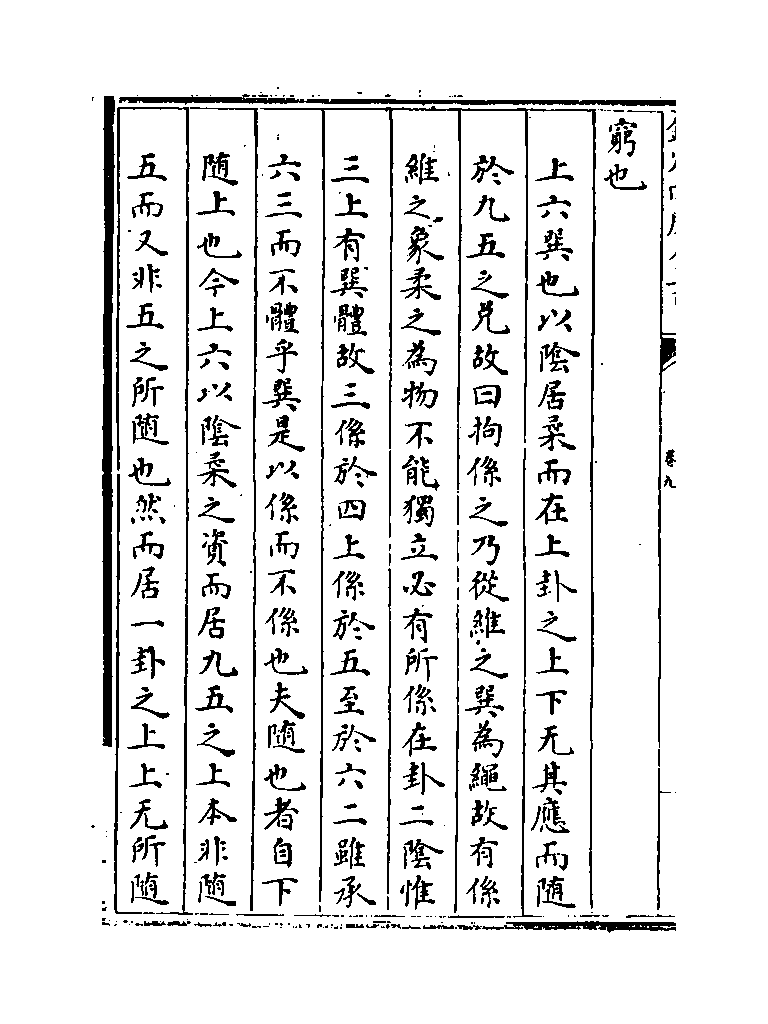 窮也
上六巽也以陰居柔而在上卦之上下无其應而随
於九五之兑故曰拘係之乃從維之巽為繩故有係
維之象柔之為物不能獨立必有所係在卦二陰惟
三上有巽體故三係於四上係於五至於六二雖承
六三而不體乎巽是以係而不係也夫随也者自下
随上也今上六以陰柔之資而居九五之上本非随
五而又非五之所随也然而居一卦之上上无所随
卷九